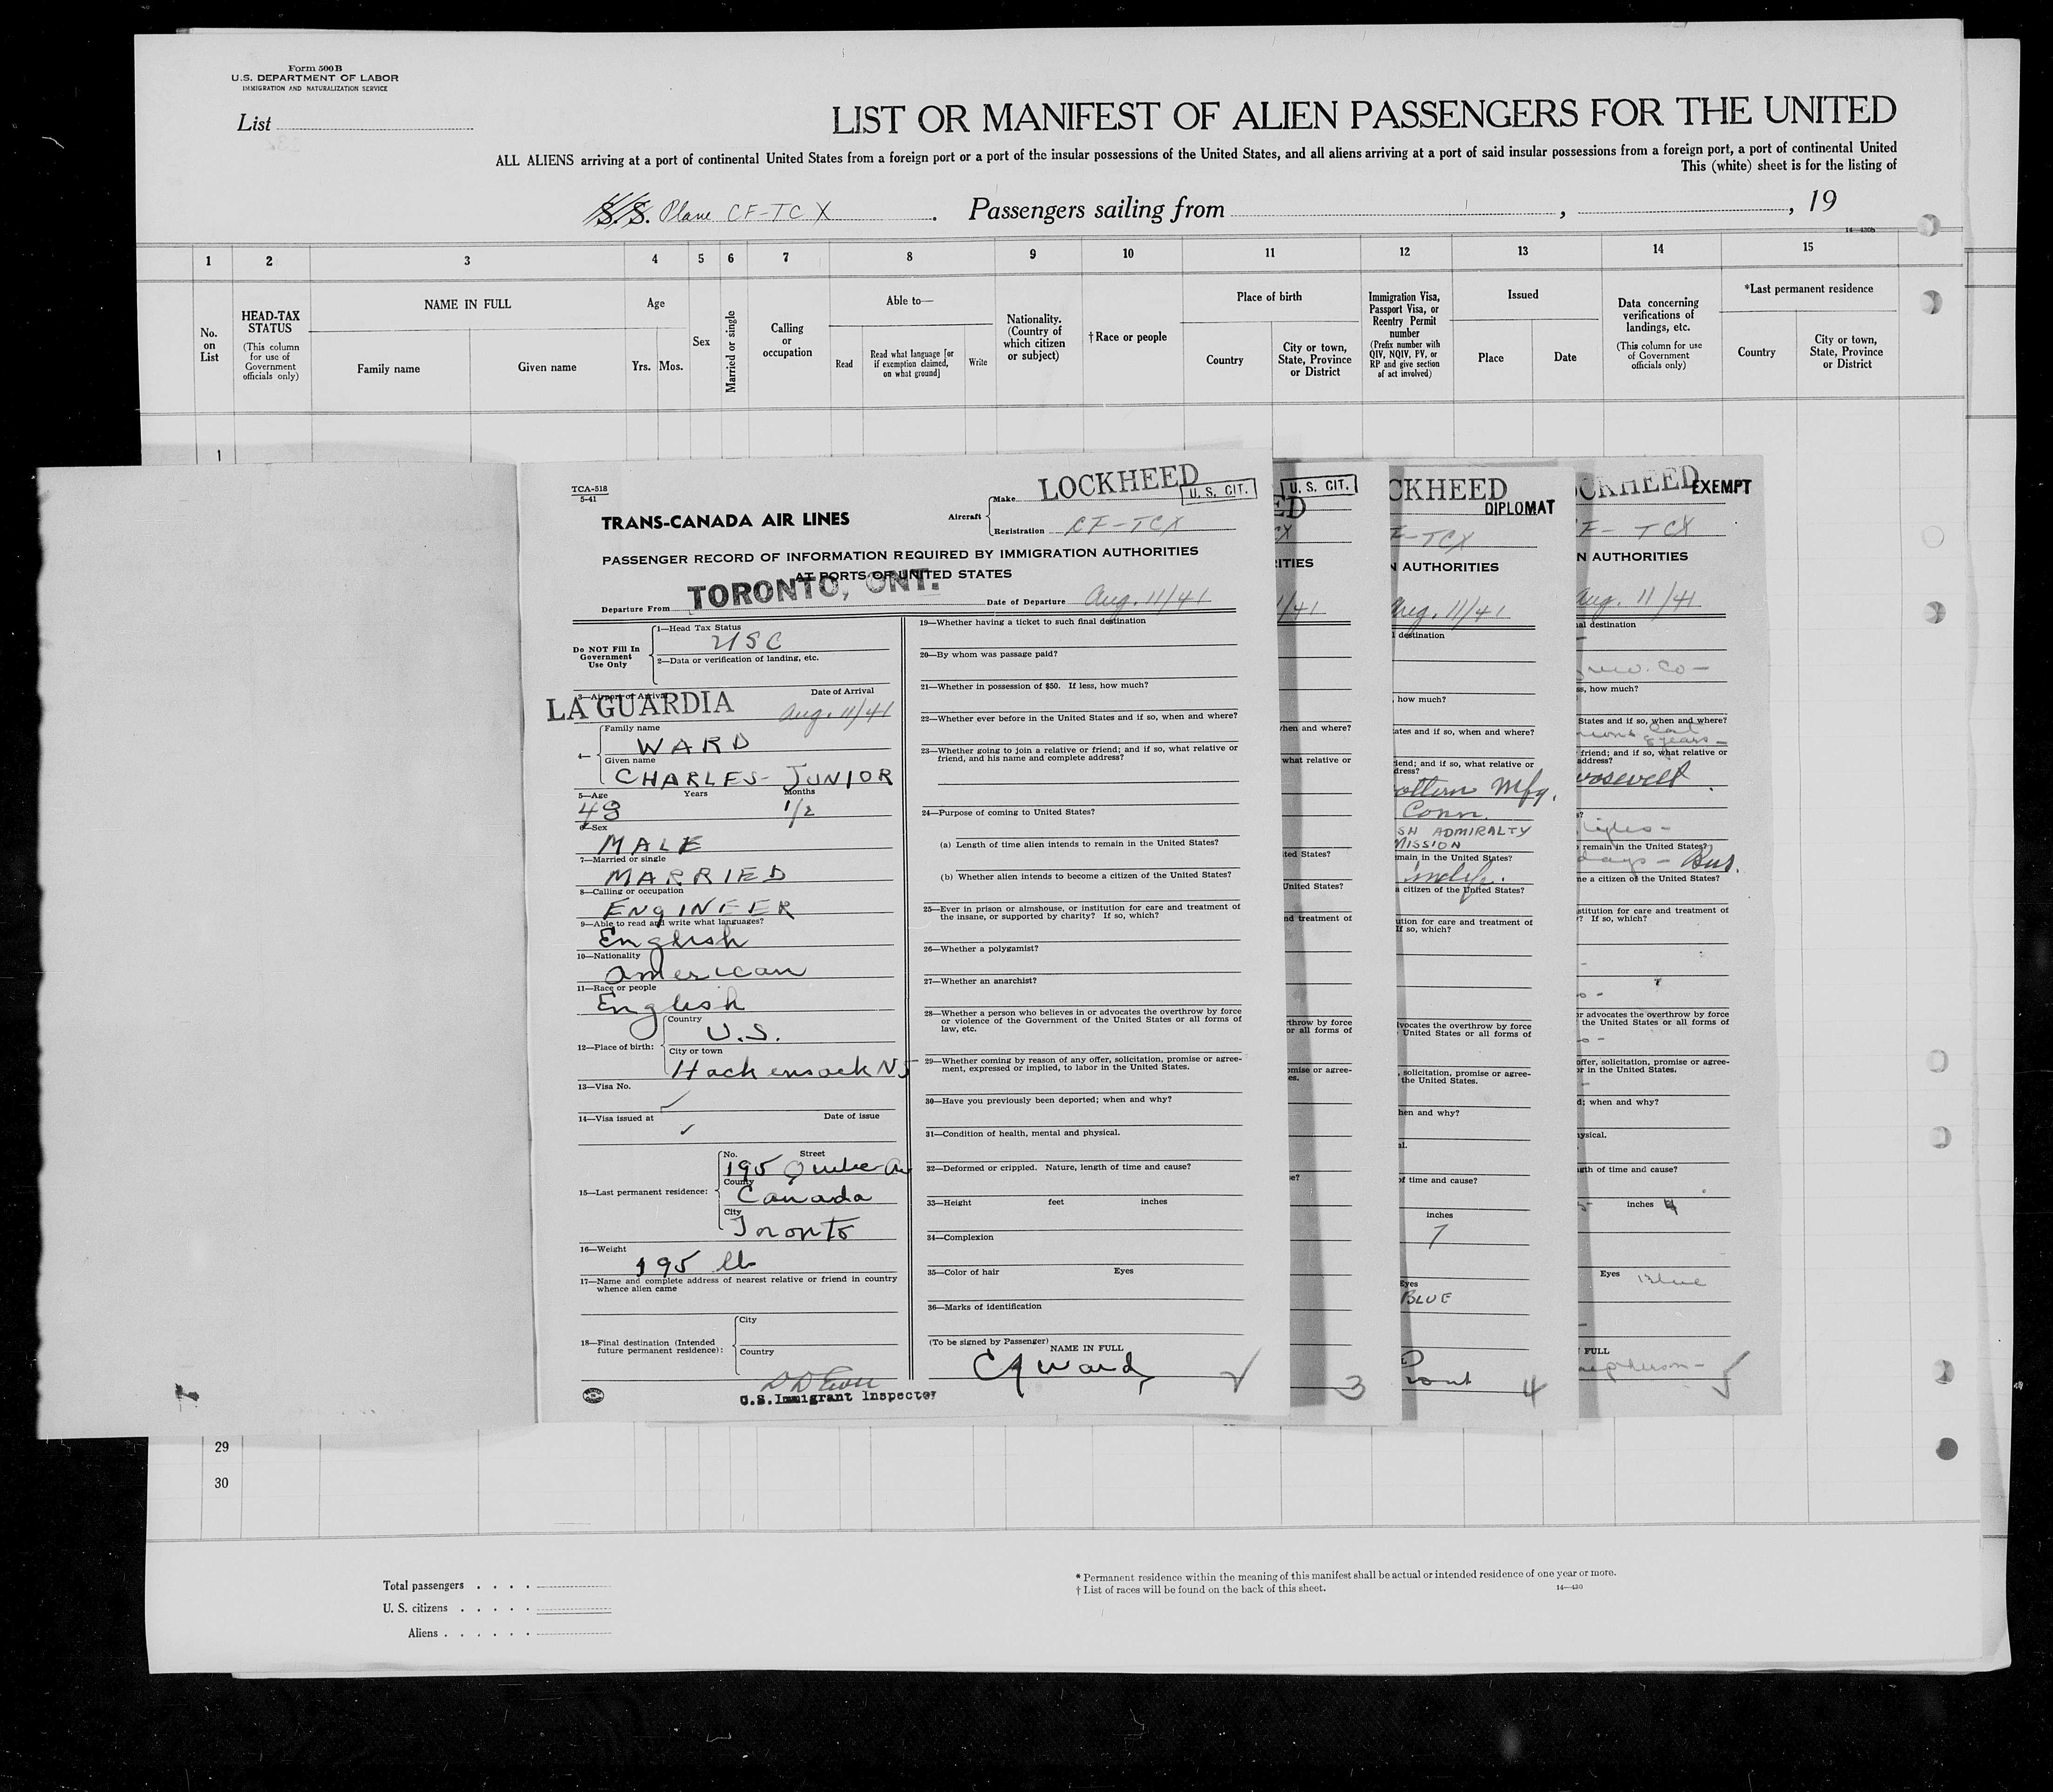 Form 500B
U.S. DEPARTMENT OF LABOR
IMMIGRATION AND NATURALIZATION SERVICE
List
LIST OR MANIFEST OF ALIEN PASSENGERS FOR THE UNITED
ALL ALIENS arriving at a port of continental United States from a foreign port or a port of the insular possessions of the United States, and all aliens arriving at a port of said insular possessions from a foreign port, a port of continental United
This (white) sheet is for the listing of
S.S. Plane CF-TCX. Passengers sailing from , , 19
14—430b
1 2 3 4 5 6 7 8 9 10 11 12 13 14 15
No. on List
HEAD-TAX STATUS
(This column for use of Government officials only)
NAME IN FULL
Family name Given name
Age
Yrs. Mos.
Sex
Married or single
Calling or occupation
Able to—
Read
Read what language [or if exemption claimed, on what ground]
Write
Nationality. (Country of which citizen or subject)
†Race or people
Place of birth
Country
City or town, State, Province or District
Immigration Visa, Passport Visa, or Reentry Permit number
(Prefix number with QIV, NQIV, PV, or RP and give section of act involved)
Issued
Place Date
Data concerning verifications of landings, etc.
(This column for use of Government officials only)
*Last permanent residence
Country
City or town, State, Province or District
1
TCA-518
5-41
TRANS-CANADA AIR LINES
Aircraft
Make LOCKHEED
U. S. CIT.
Registration CF-TCX
PASSENGER RECORD OF INFORMATION REQUIRED BY IMMIGRATION AUTHORITIES
AT PORTS OF UNITED STATES
Departure From TORONTO, ONT.
Date of Departure Aug. 11/41
Do NOT Fill In Government Use Only
1—Head Tax Status
USC
2—Data or verification of landing, etc.
3—Airport of Arrival Date of Arrival
LA GUARDIA Aug. 11/41
4—
Family name
WARD
Given name
CHARLES-JUNIOR
5—Age Years Months
48 1/2
6—Sex
MALE
7—Married or single
MARRIED
8—Calling or occupation
ENGINEER
9—Able to read and write what languages?
English
10—Nationality
American
11—Race or people
English
12—Place of birth:
Country
U.S.
City or town
Hackensack NJ
13—Visa No.
14—Visa issued at Date of issue
15—Last permanent residence:
No. Street
195
County
Canada
City
Toronto
16—Weight
195 lb
17—Name and complete address of nearest relative or friend in country
whence alien came
18—Final destination (Intended
future permanent residence):
City
Country
U.S. Immigrant Inspector
19—Whether having a ticket to such final destination
20—By whom was passage paid?
21—Whether in possession of $50. If less, how much?
22—Whether ever before in the United States and if so, when and where?
23—Whether going to join a relative or friend; and if so, what relative or
friend, and his name and complete address?
24—Purpose of coming to United States?
(a) Length of time alien intends to remain in the United States?
(b) Whether alien intends to become a citizen of the United States?
25—Ever in prison or almshouse, or institution for care and treatment of
the insane, or supported by charity? If so, which?
26—Whether a polygamist?
27—Whether an anarchist?
28—Whether a person who believes in or advocates the overthrow by force
or violence of the Government of the United States or all forms of
law, etc.
29—Whether coming by reason of any offer, solicitation, promise or agree-
ment, expressed or implied, to labor in the United States.
30—Have you previously been deported; when and why?
31—Condition of health, mental and physical.
32—Deformed or crippled. Nature, length of time and cause?
33—Height feet inches
34—Complexion
35—Color of hair Eyes
36—Marks of identification
(To be signed by Passenger)
NAME IN FULL
C Ward
U. S. CIT.
ED
X
ITIES
1/41
when and where?
what relative or
ited States?
United States?
nd treatment of
rthrow by force
or all forms of
omise or agree-
es.
se?
3
CKHEED
DIPLOMAT
F-TCX
N AUTHORITIES
Aug. 11/41
l destination
, how much?
ates and if so, when and where?
iend; and if so, what relative or
dress?
Mfg.
Conn.
SH ADMIRALTY
MISSION
main in the United States?
Indef.
a citizen of the United States?
ution for care and treatment of
If so, which?
lvocates the overthrow by force
United States or all forms of
, solicitation, promise or agree-
the United States.
hen and why?
al.
of time and cause?
inches
7
Eyes
BLUE
4
OCKHEED
EXEMPT
F-TCX
N AUTHORITIES
Aug. 11/41
al destination
Co-
ss, how much?
States and if so, when and where?
8 years-
friend; and if so, what relative or
address?
oosevelt.
s?
remain in the United States?
days - Bus.
ne a citizen of the United States?
stitution for care and treatment of
? If so, which?
or advocates the overthrow by force
the United States or all forms of
offer, solicitation, promise or agree-
or in the United States.
d; when and why?
ysical.
gth of time and cause?
inches 4
Eyes Blue
FULL
29
30
Total passengers
U. S. citizens
Aliens
* Permanent residence within the meaning of this manifest shall be actual or intended residence of one year or more.
† List of races will be found on the back of this sheet.
14—430